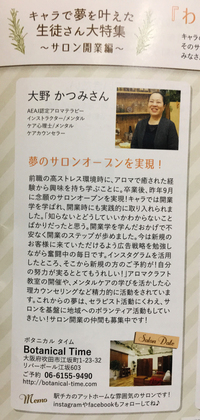 キャラで夢を叶えた
生徒さん大特集
〜サロン開業編〜
『わ
キャラ
その
みなさ
大野 かつみさん
AEAJ認定アロマテラピー
インストラクター/メンタル
ケア心理士/メンタル
ケアカウンセラー
夢のサロンオープンを実現!
前職の高ストレス環境時に、アロマで癒された経
験から興味を持ち学ぶことに。卒業後、昨年9月
に念願のサロンオープンを実現!キャラでは開業
学を学ばれ、開業時にも実践的に取り入れられま
した。「知らないとどうしていいかわからないこと
ばかりだったと思う。開業学を学んだおかげで不
安なく開業のステップが歩めました。今は新規の
お客様に来ていただけるよう広告戦略を勉強し
ながら奮闘中の毎日です。インスタグラムを活用
したところ、そこから新規の方のご予約が!自分
の努力が実るととてもうれしい!」アロマクラフト
教室の開催や、メンタルケアの学びを活かした心
理カウンセリングなど精力的に活動をされていま
す。これからの夢は、セラピスト活動にくわえ、サ
ロンを基盤に地域へのボランティア活動もしてい
きたい!サロン開業の仲間も募集中です!
ボタニカル タイム
Botanical Time
大阪府吹田市江坂町1-23-32
リバーポール江坂603
ご予約 06-6155-9490
http://botanical-time.com
Salon Data
Memo
駅チカのアットホームな雰囲気のサロンです!
instagramやfacebookもフォローしてね♪